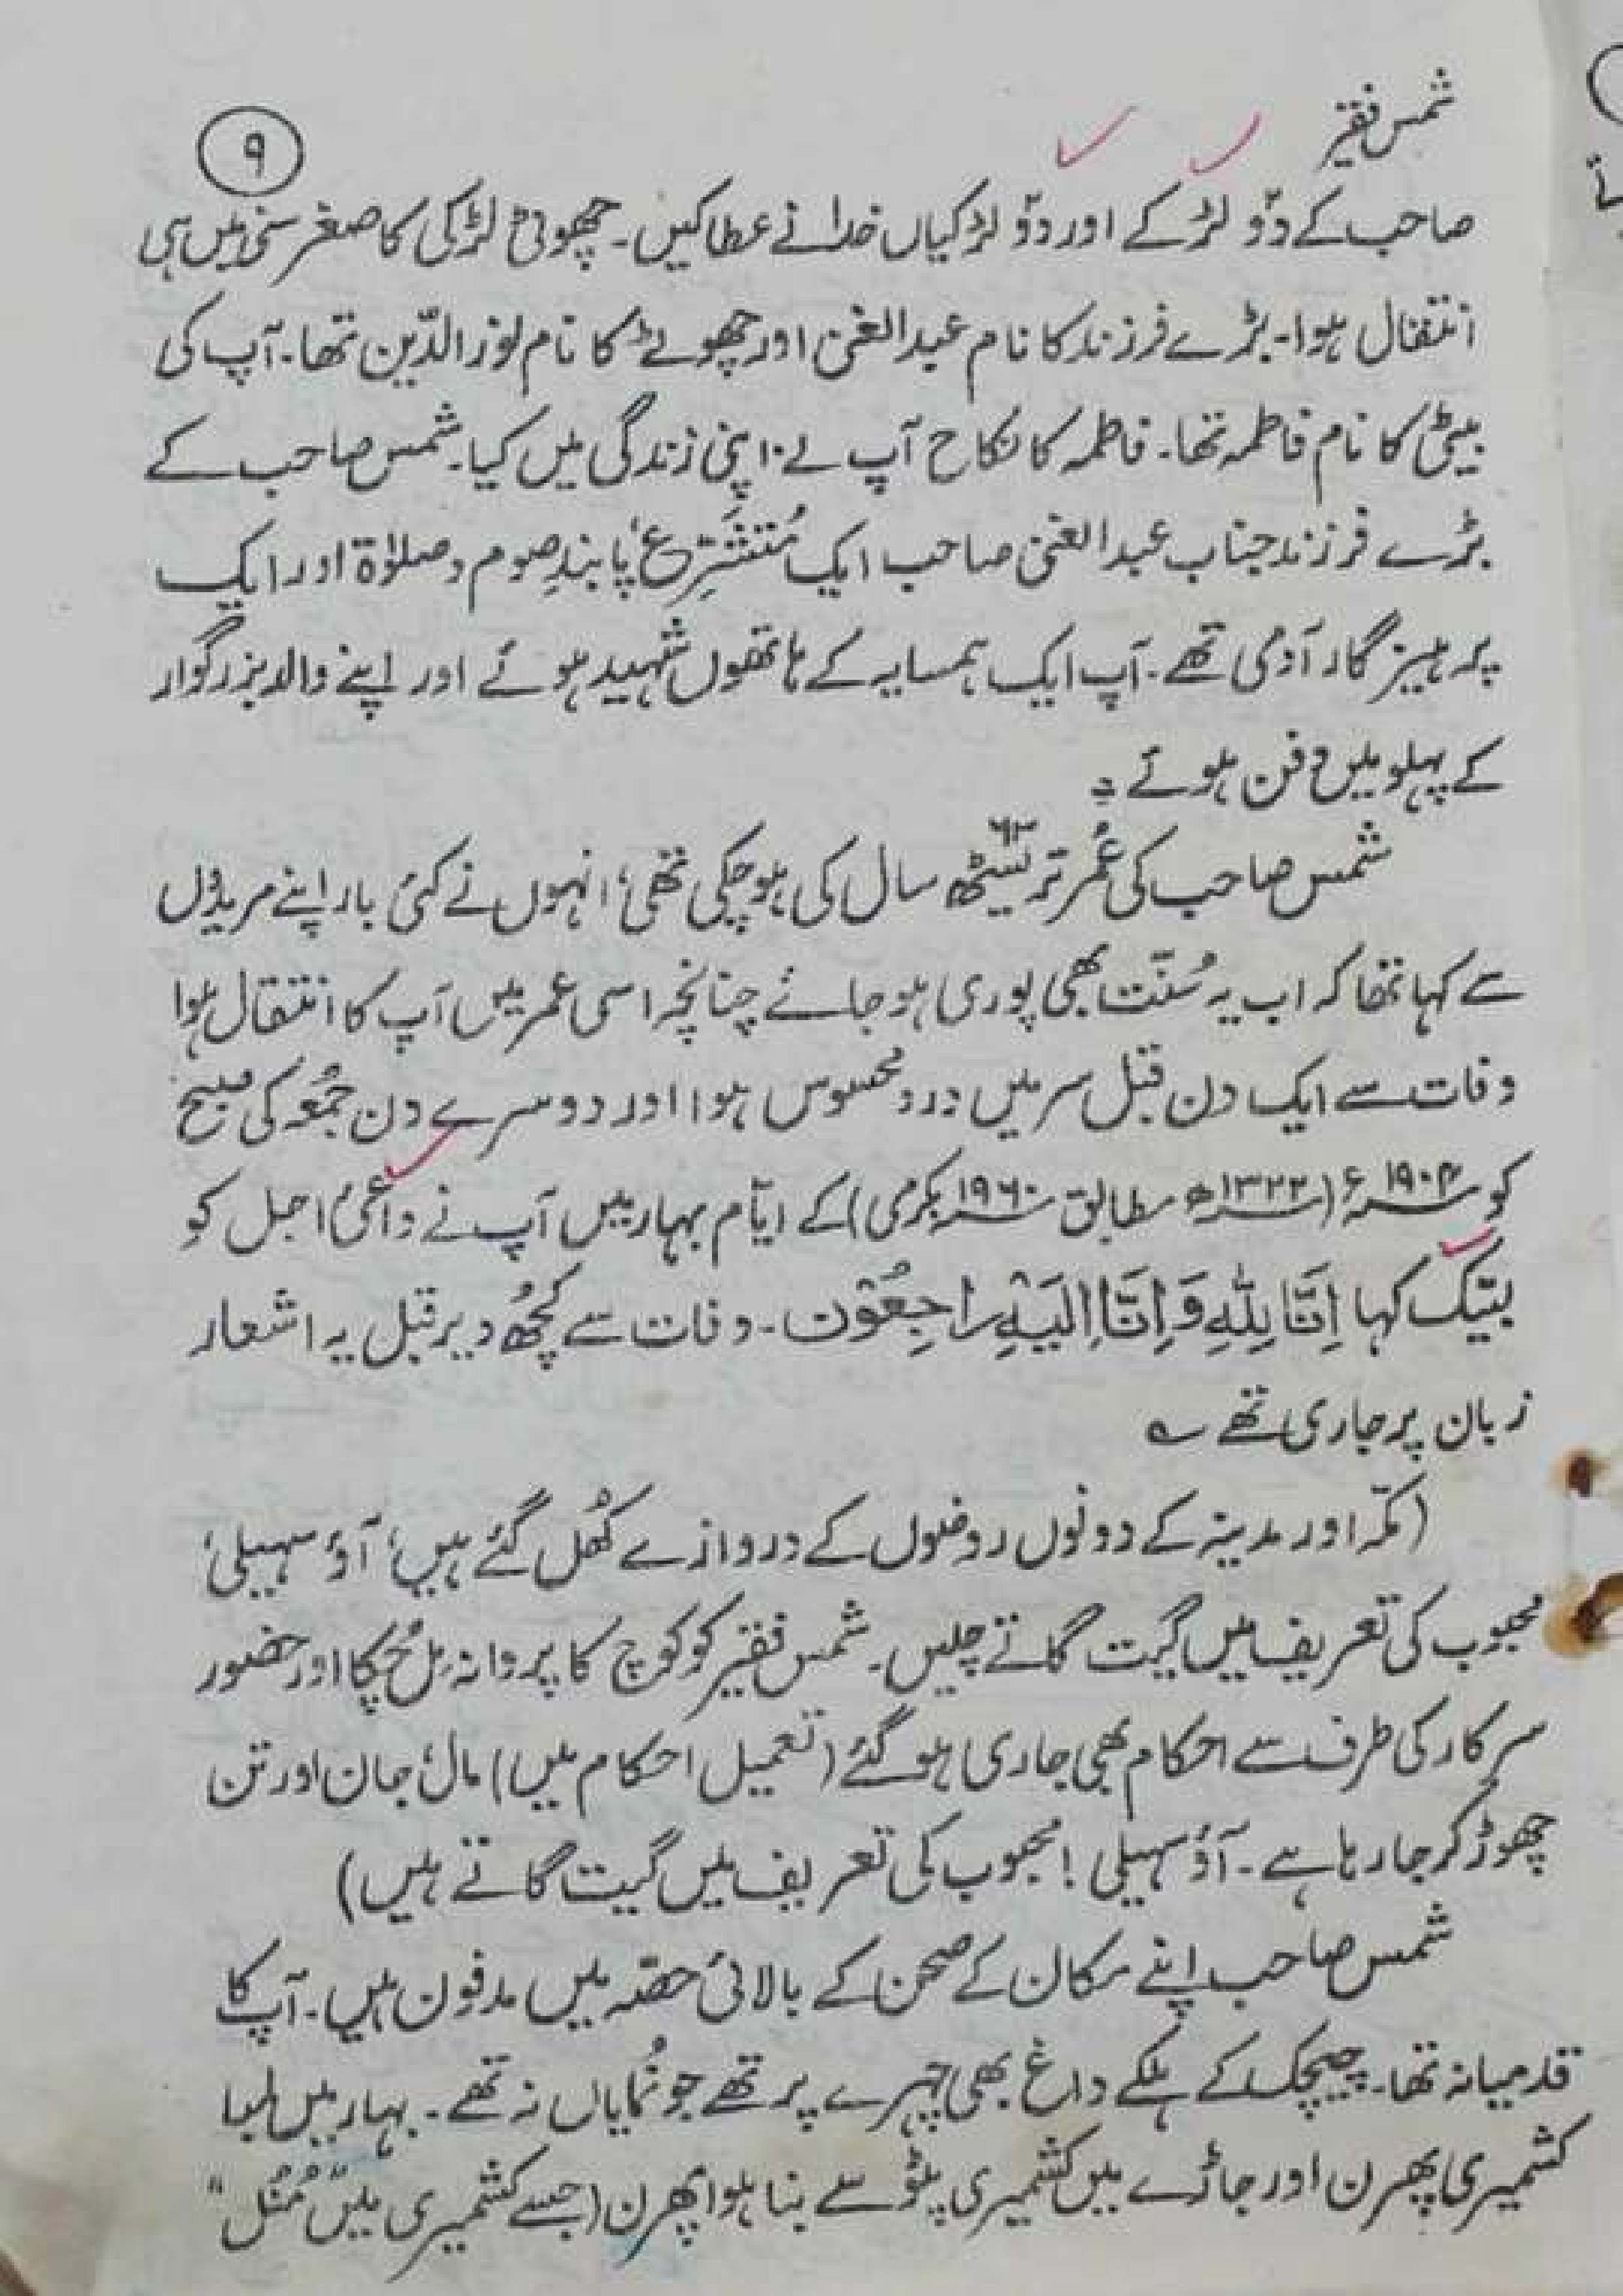 شمس فقیر
۹
صاحب کے دو لڑکے اور دو لڑکیاں خدا نے عطا کیں۔ چھوٹی لڑکی کا صغر سنی میں ہی
انتقال ہوا۔ بڑے فرزند کا نام عبدالغنی اور چھوٹے کا نام نور الدّین تھا۔ آپ کی
بیٹی کا نام فاطمہ تھا۔ فاطمہ کا نکاح آپ نے اپنی زندگی میں کیا۔ شمس صاحب کے
بڑے فرزند جناب عبدالغنی صاحب ایک مُتَشَرِّع، پابندِ صوم و صلوٰۃ اور ایک
پرہیزگار آدمی تھے۔ آپ ایک ہمسایہ کے ہاتھوں شہید ہوئے اور اپنے والد بزرگوار
کے پہلو میں دفن ہوئے۔
شمس صاحب کی عُمر تریسٹھ ۶۳ سال کی ہو چکی تھی، انہوں نے کئی بار اپنے مریدوں
سے کہا تھا کہ اب یہ سُنّت بھی پوری ہو جائے چنانچہ اسی عمر میں آپ کا انتقال ہوا
وفات سے ایک دن قبل سر میں درد محسوس ہوا اور دوسرے دن جُمعہ کی صبح
کو ۱۹۰۴ء (۱۳۲۲ھ مطابق ۱۹۶۰ بکرمی) کے ایّام بہار میں آپ نے داعئ اجل کو
لبیّک کہا اِنَّا لِلّٰهِ وَاِنَّا اِلَيْهِ رَاجِعُوْن۔ وفات سے کچُھ دیر قبل یہ اشعار
زبان پر جاری تھے ؎
(مکّہ اور مدینہ کے دونوں روضوں کے دروازے کُھل گئے ہیں، آؤ سہیلی،
محبوب کی تعریف میں گیت گاتے چلیں۔ شمس فقیر کو کوچ کا پروانہ مِل چُکا اور حضور
سرکار کی طرف سے احکام بھی جاری ہو گئے (تعمیل احکام میں) مال، جان اور تن
چھوڑ کر جا رہا ہے۔ آؤ سہیلی! محبوب کی تعریف میں گیت گاتے ہیں)
شمس صاحب اپنے مکان کے صحن کے بالائی حصّہ میں مدفون ہیں۔ آپ کا
قد میانہ تھا۔ چیچک کے ہلکے داغ بھی چہرے پر تھے جو نُمایاں نہ تھے۔ بہار میں لمبا
کشمیری پھرن اور جاڑے میں کشمیری پٹو سے بنا ہوا پھرن (جسے کشمیری میں "